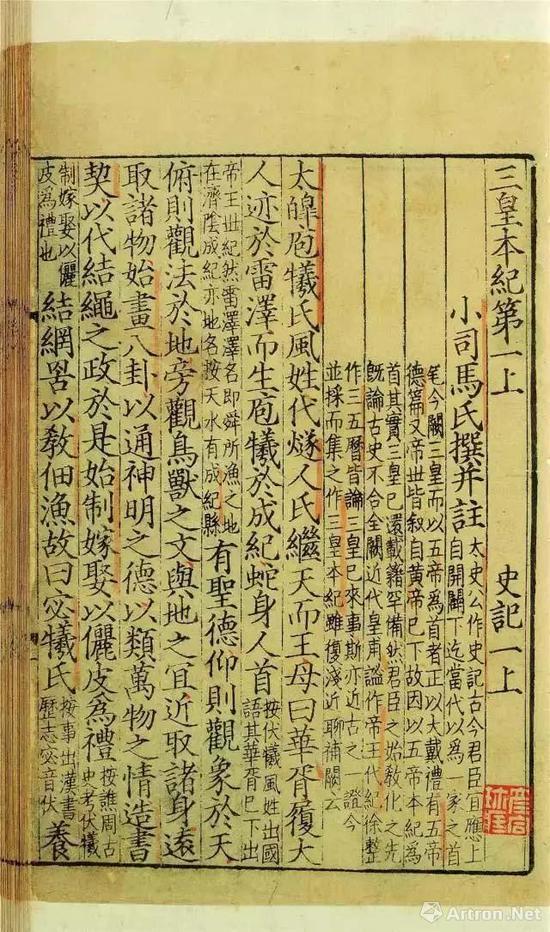 三皇本紀第一上　史記一上
小司馬氏撰并註
太史公作史記古今君臣宜應上
自開闢下迄當代以爲一家之首
笔今闕三皇而以五帝爲首者正以大戴禮有五帝
德篇又帝世皆叙自黃帝已下故因以五帝本紀爲
首其實三皇已還載籍罕備然君臣之始敎化之先
既論古史不合全闕近代皇甫謐作帝王代紀徐整
作三五曆皆論三皇已來事斯亦近古之一證今
並採而集之作三皇本紀雖復淺近聊補闕云
太皥庖犧氏風姓代燧人氏繼天而王母曰華胥履大
人迹於雷澤而生庖犧於成紀蛇身人首
按伏犧風姓出國
語其華胥已下出
帝王世紀然雷澤澤名即舜所漁之地
在濟陰成紀亦地名按天水有成紀縣
有聖德仰則觀象於天
俯則觀法於地旁觀鳥獸之文與地之宜近取諸身遠
取諸物始畫八卦以通神明之德以類萬物之情造書
契以代結繩之政於是始制嫁娶以儷皮爲禮
按譙周古
史考伏犧
制嫁娶以儷
皮爲禮也
結網罟以敎佃漁故曰宓犧氏
按事出漢書
歷志宓音伏
養
雅昌艺术网
Artron.Net